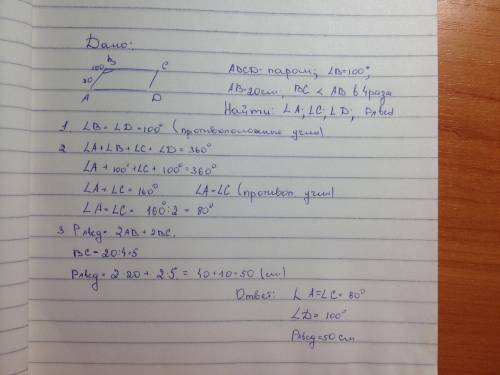 Дано:
B
100°
C
20
A
D
ABCD - парал; ∠B=100°;
AB=20см, BC < AB в 4 раза
Найти: ∠A; ∠C; ∠D; Pabcd
1. ∠B = ∠D = 100° (противоположные углы)
2 ∠A+∠B+∠C+∠D = 360°
∠A + 100°+∠C + 100°=360°
∠A+∠C = 160° ∠A=∠C (противоп. углы)
∠A=∠C = 160°:2 = 80°
3 Pabcд = 2AB + 2BC.
BC = 20:4=5
Pabcд = 2·20 + 2·5 = 40+10=50 (см)
Ответ: ∠A=∠C = 80°
∠D = 100°
Pabcд=50см